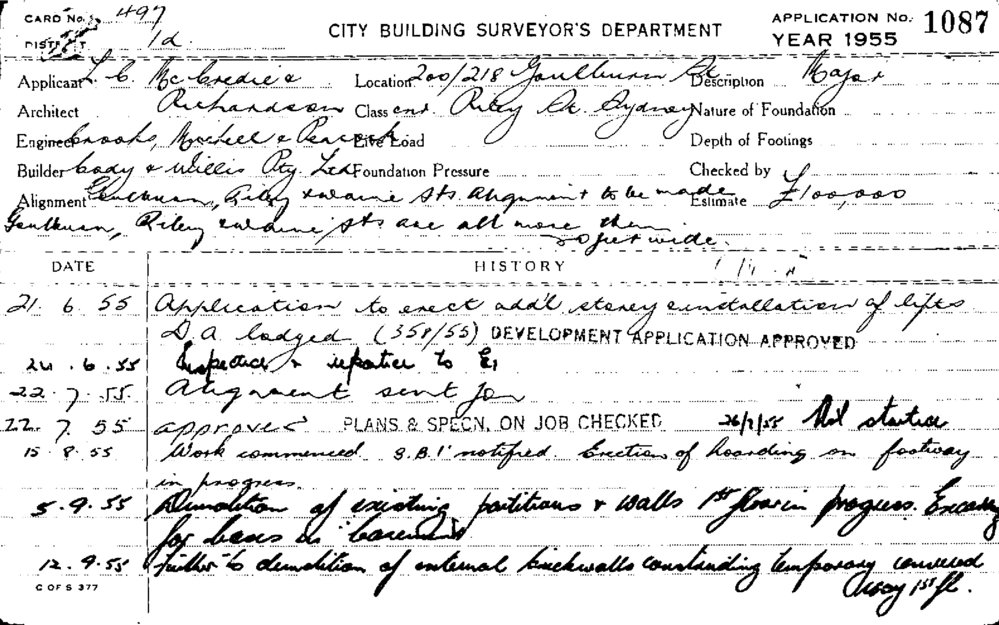 CARD No. 497
DISTRICT 1d
CITY BUILDING SURVEYOR'S DEPARTMENT
APPLICATION No. 1087
YEAR 1955
Applicant L. C. McCredie & Location 200/218 Goulburn St Description Major
Architect Richardson Class cnr Riley St. Sydney Nature of Foundation
Engineer Mitchell & Peacock Live Load Depth of Footings
Builder Cody & Willis Pty. Ltd Foundation Pressure Checked by
Alignment Goulburn, Riley & Sts Alignment to be made Estimate £100,000
Goulburn, Riley & Sts are all more than
20 feet wide.
DATE HISTORY
21. 6. 55 Application to erect add'l storey & installation of lifts
D.A. lodged (358/55) DEVELOPMENT APPLICATION APPROVED
24. 6. 55 Inspected & reported to
22. 7. 55. Alignment sent for
22. 7. 55 approved PLANS & SPECN. ON JOB CHECKED 26/7/55 Not started
15. 8. 55 Work commenced S.B.I. notified. Erection of hoarding on footway
in progress.
5. 9. 55 Demolition of existing partitions & walls 1st floor in progress.
for bases in basement
12. 9. 55 Further to demolition of external brickwalls constructing temporary covered
way 1st fl.
C OF S 377